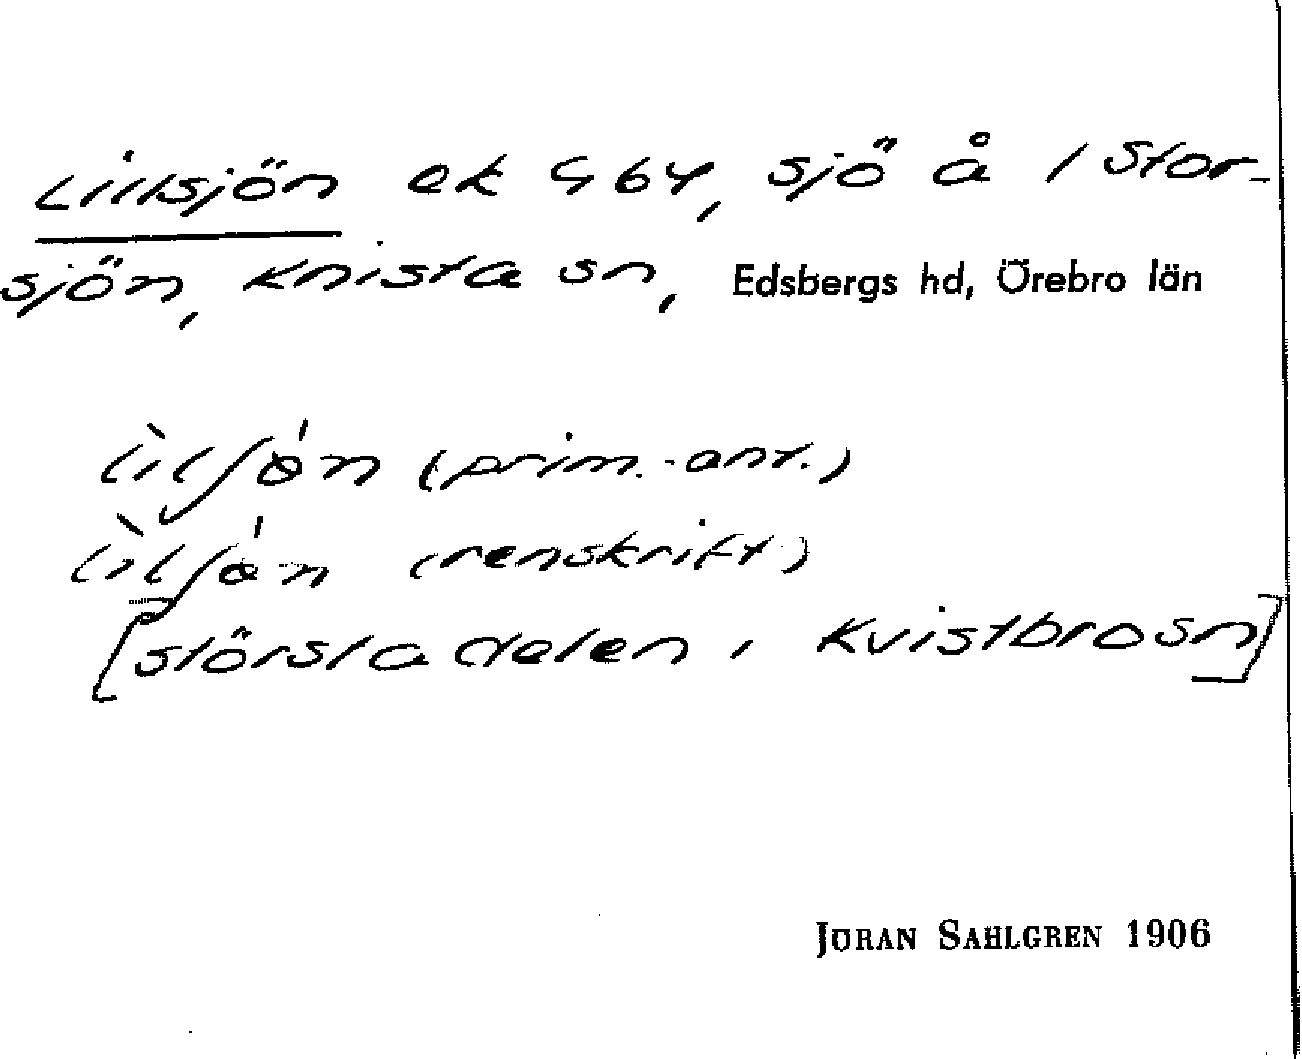 Lillsjön ek G 64, sjö å i Stor-
sjön, Knista sn, Edsbergs hd, Örebro län
lìlʃǿn (prim.-ant.)
lìlʃǿn (renskrift)
[största delen i Kvistbro sn]
JÖRAN SAHLGREN 1906